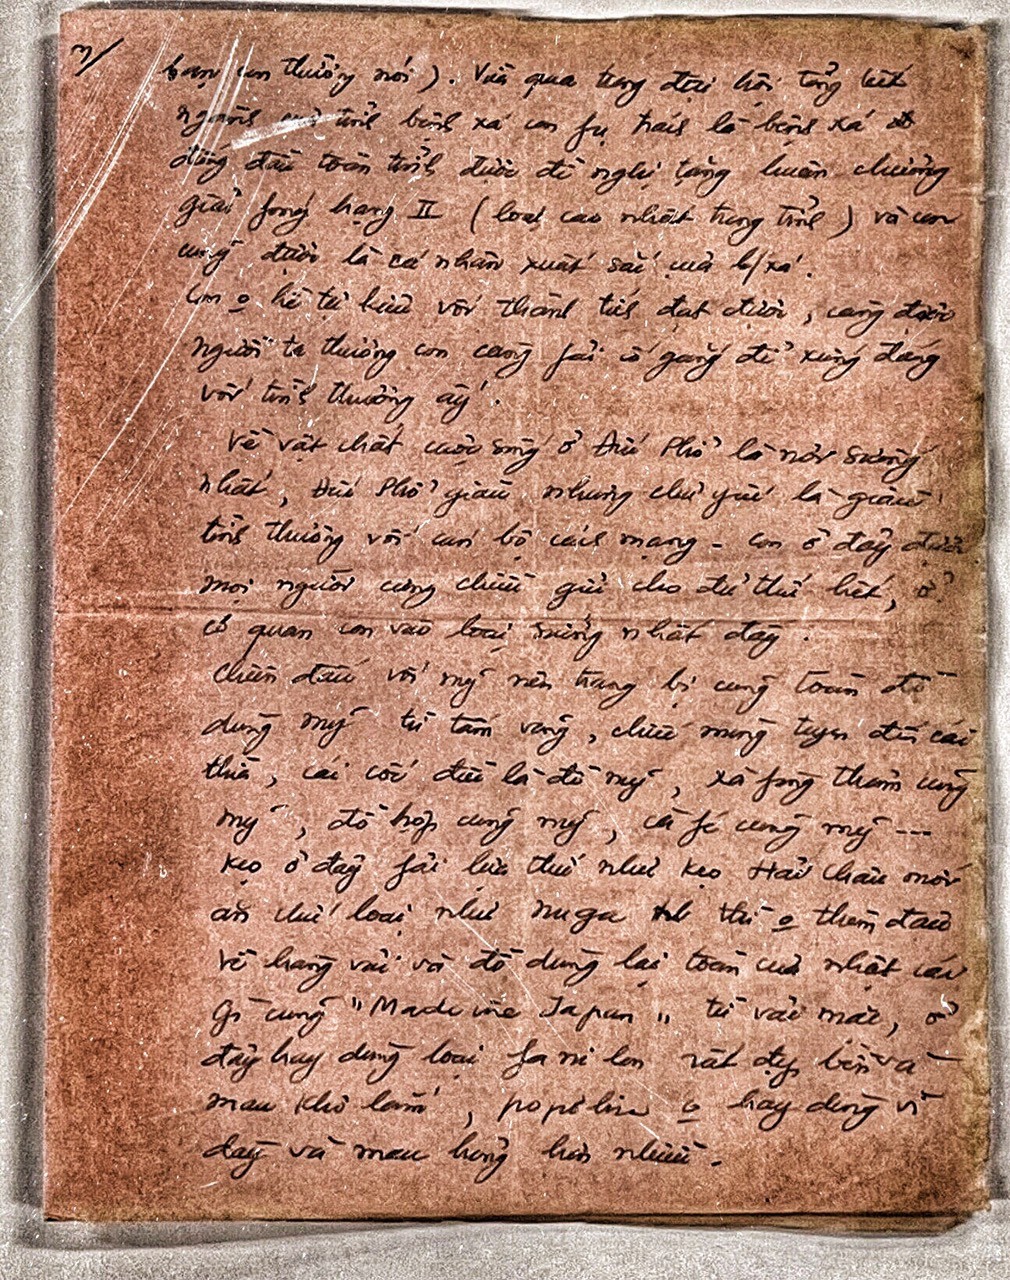 3/
bạn con thường nói). Vừa qua trong đại hội tổng kết
ngành của tỉnh bệnh xá con fụ trách là bệnh xá
đứng đầu toàn tỉnh được đề nghị tặng huân chương
giải fóng hạng II (loại cao nhất trong tỉnh) và con
cũng được là cá nhân xuất sắc của b/xá.
Con o hề tự kiêu với thành tích đạt được, càng được
người ta thương con càng fải cố gắng để xứng đáng
với tình thương ấy.
Về vật chất cuộc sống ở Đức Phổ là nơi sướng
nhất, Đức Phổ giàu nhưng chủ yếu là giàu
tình thương với cán bộ cách mạng - Con ở đây được
mọi người cưng chiều gửi cho đủ thứ hết, ở
cơ quan con vào loại sướng nhất đấy.
Chiến đấu với mỹ nên trang bị cũng toàn đồ
dùng mỹ từ tấm võng, chiếc mùng tuyn đến cái
thìa, cái cốc đều là đồ mỹ, xà fòng thơm cũng
mỹ, đồ hộp cũng mỹ, cà fê cũng mỹ ---
Kẹo ở đây fải lựa thứ như kẹo Hải Châu mới
ăn chứ loại như nuga thì o thèm đâu
Về hàng vải và đồ dùng lại toàn của nhật cái
gì cũng "Made ine Japan" từ vải mặc, ở
đây hay dùng loại fa ni lon rất đẹp bền và
mau khô lắm, popơlin o hay dùng vì
dầy và mau hỏng hơn nhiều.